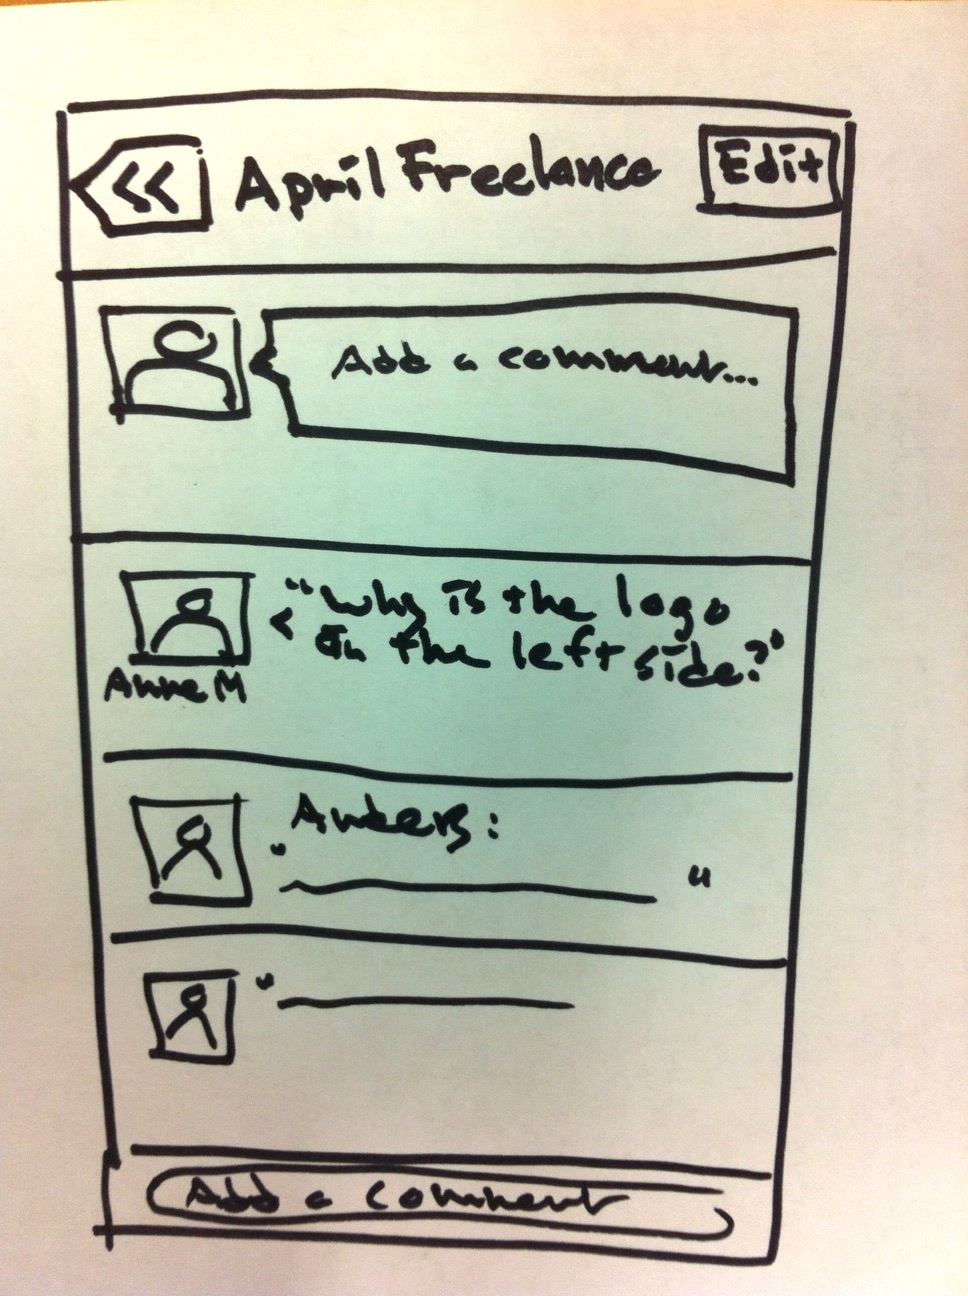 << April Freelance Edit
Add a comment...
"Why is the logo
on the left side?"
Anne M
Anders:
" "
"
Add a comment